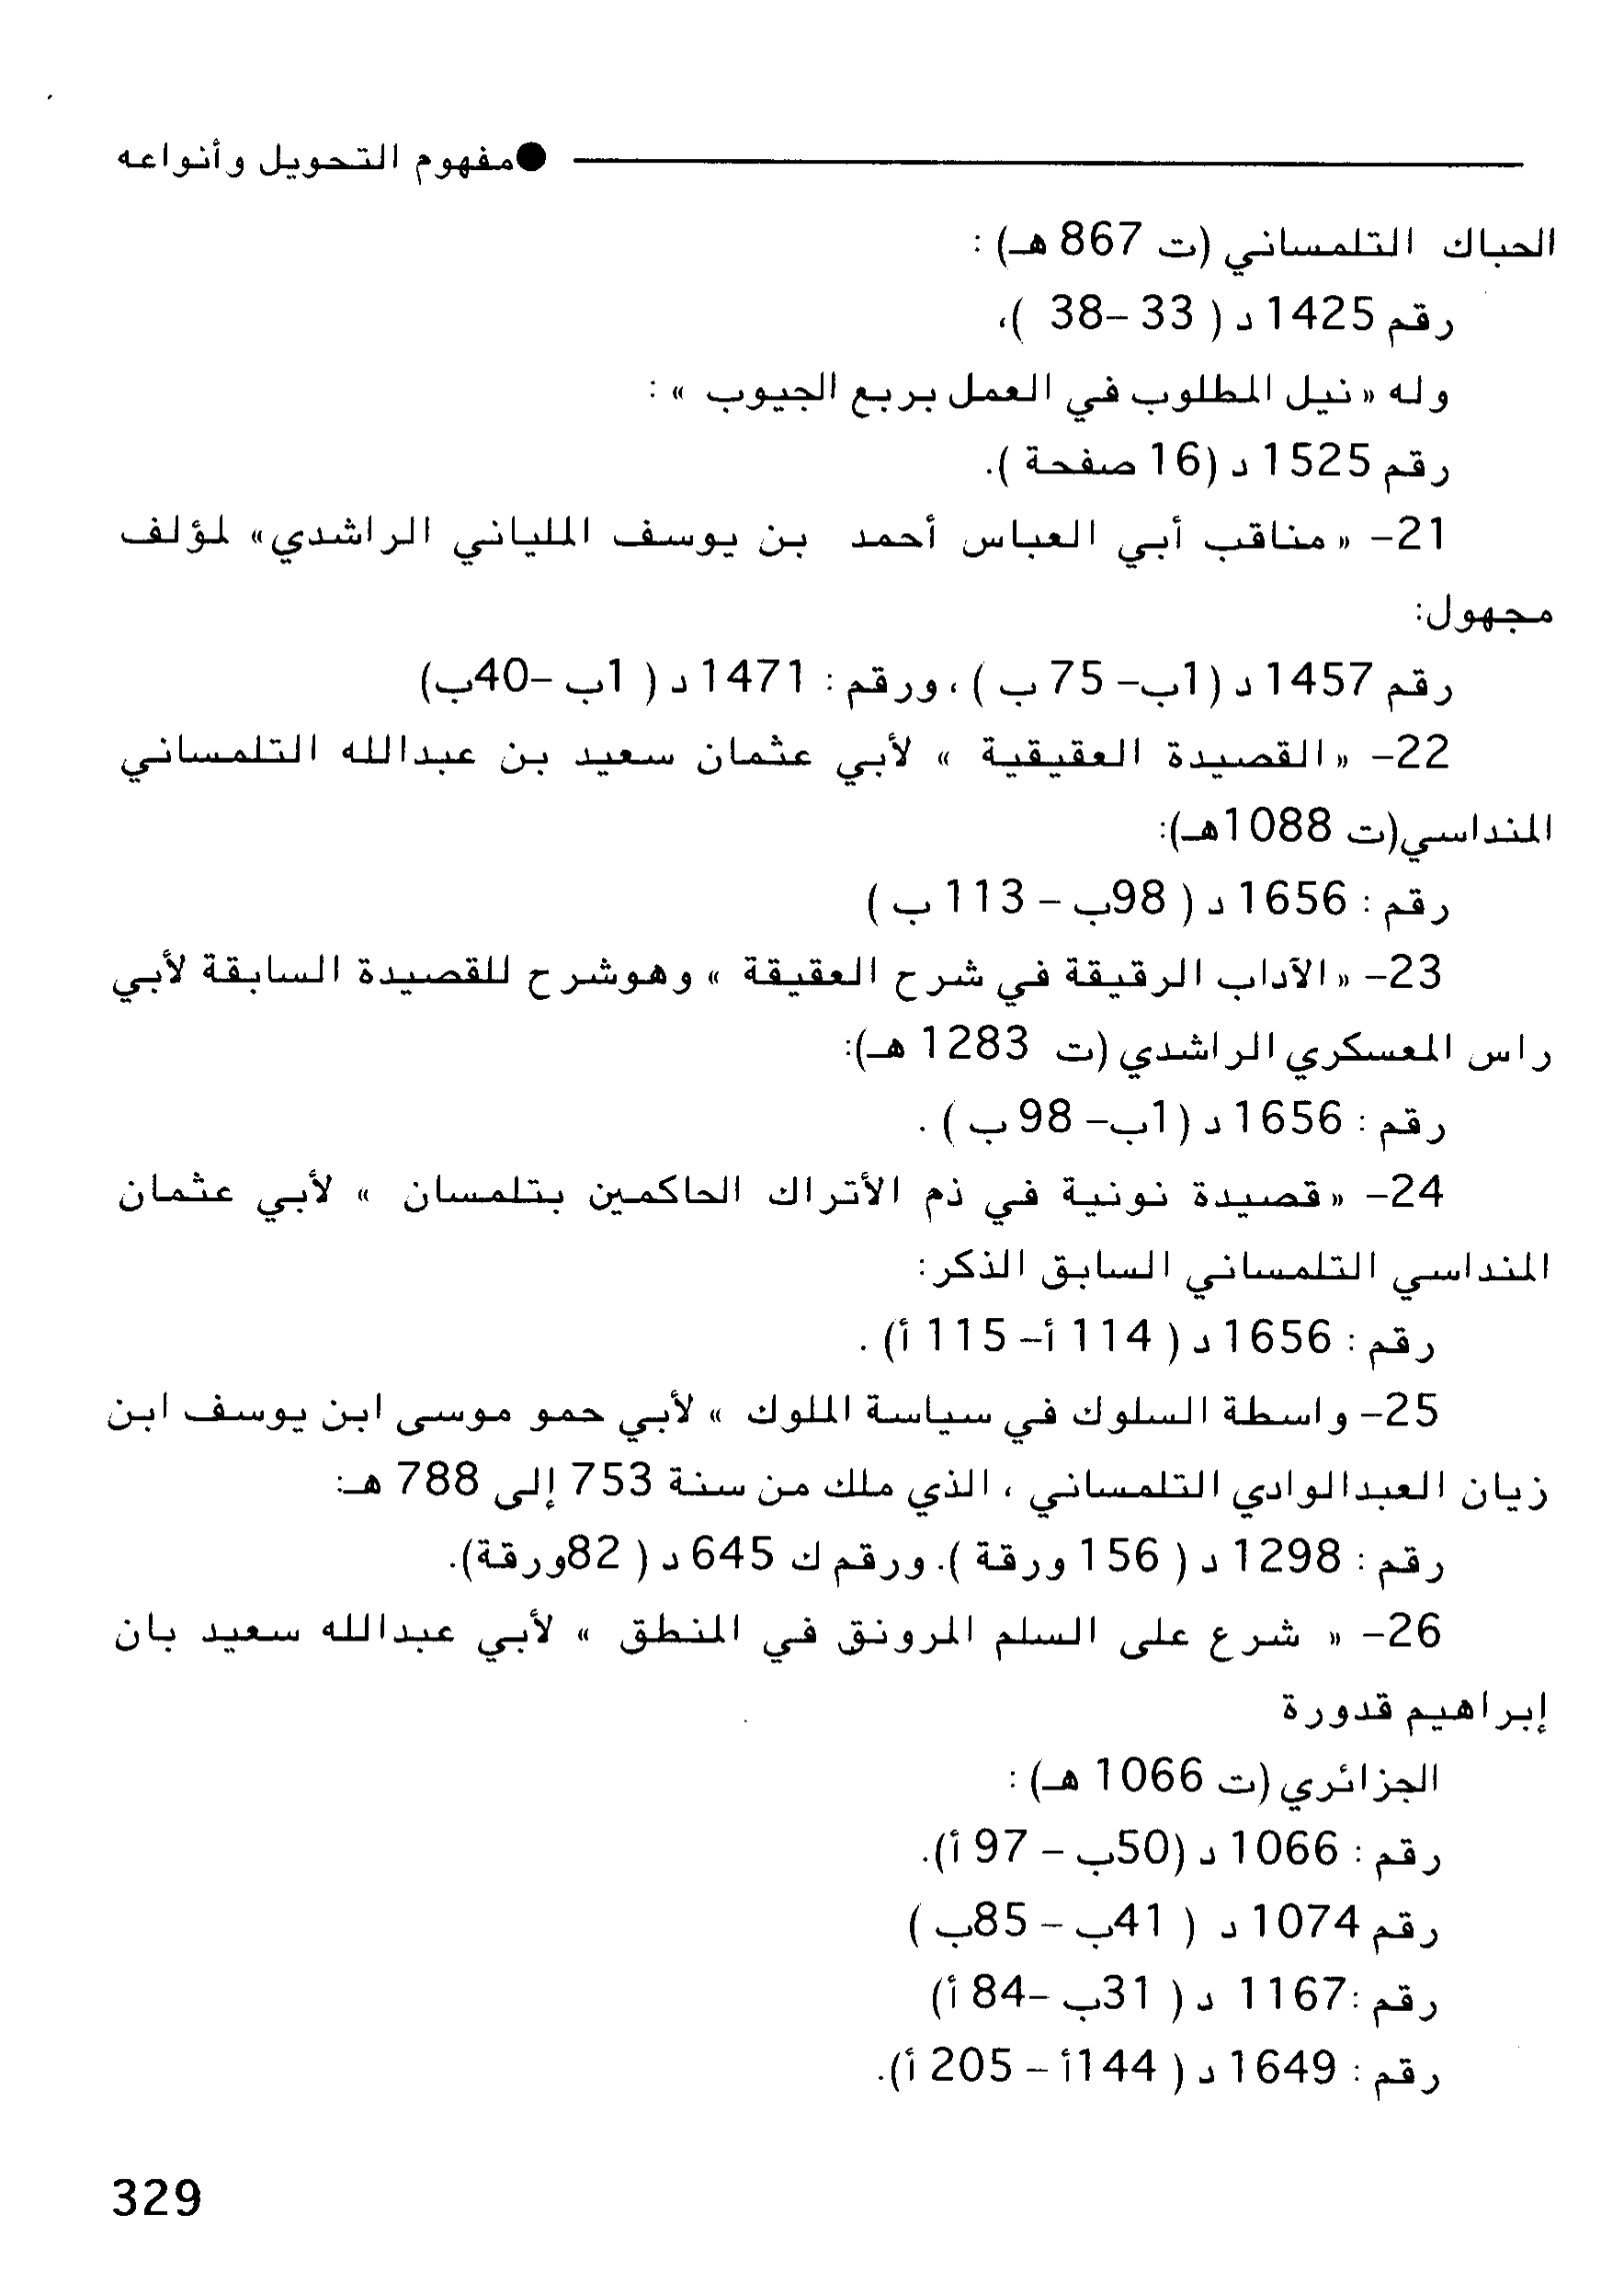 ●مفهوم التحويل وأنواعه
الحباك التلمساني (ت 867 هـ) :
رقم 1425 د ( 33 -38 )،
وله « نيل المطلوب في العمل بربع الجيوب » :
رقم 1525 د (16 صفحة ).
21- « مناقب أبي العباس أحمد بن يوسف الملياني الراشدي» لمؤلف
مجهول:
رقم 1457 د (1ب- 75 ب ) ، ورقم : 1471 د ( 1ب -40ب)
22- « القصيدة العقيقية » لأبي عثمان سعيد بن عبدالله التلمساني
المنداسي(ت 1088هـ):
رقم : 1656 د ( 98ب - 113 ب )
23- « الآداب الرقيقة في شرح العقيقة » وهوشرح للقصيدة السابقة لأبي
راس المعسكري الراشدي (ت 1283 هـ):
رقم : 1656 د (1ب- 98 ب ) .
24- « قصيدة نونية في ذم الأتراك الحاكمين بتلمسان » لأبي عثمان
المنداسي التلمساني السابق الذكر :
رقم : 1656 د ( 114 أ- 115 أ) .
25- واسطة السلوك في سياسة الملوك » لأبي حمو موسى ابن يوسف ابن
زيان العبدالوادي التلمساني ، الذي ملك من سنة 753 إلى 788 هـ:
رقم : 1298 د ( 156 ورقة ). ورقم ك 645 د ( 82ورقة).
26- « شرع على السلم المرونق في المنطق » لأبي عبدالله سعيد بان
إبراهيم قدورة
الجزائري (ت 1066 هـ) :
رقم : 1066 د (50ب - 97 أ).
رقم 1074 د ( 41ب - 85ب )
رقم :1167 د ( 31ب -84 أ)
رقم : 1649 د ( 144أ - 205 أ).
329